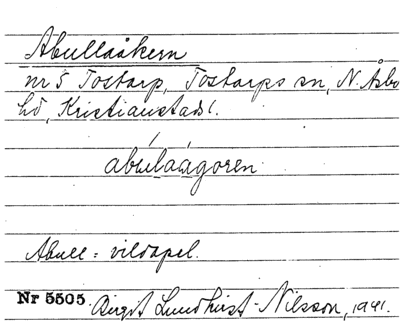 Abullaåkern
nr 5 Tostarp, Tostarps sn, N. Åsbo
hd, Kristianstads l.
abúlaàgoren
Abull = vildapel.
Nr 5505. Birgit Lundkvist-Nilsson, 1941.